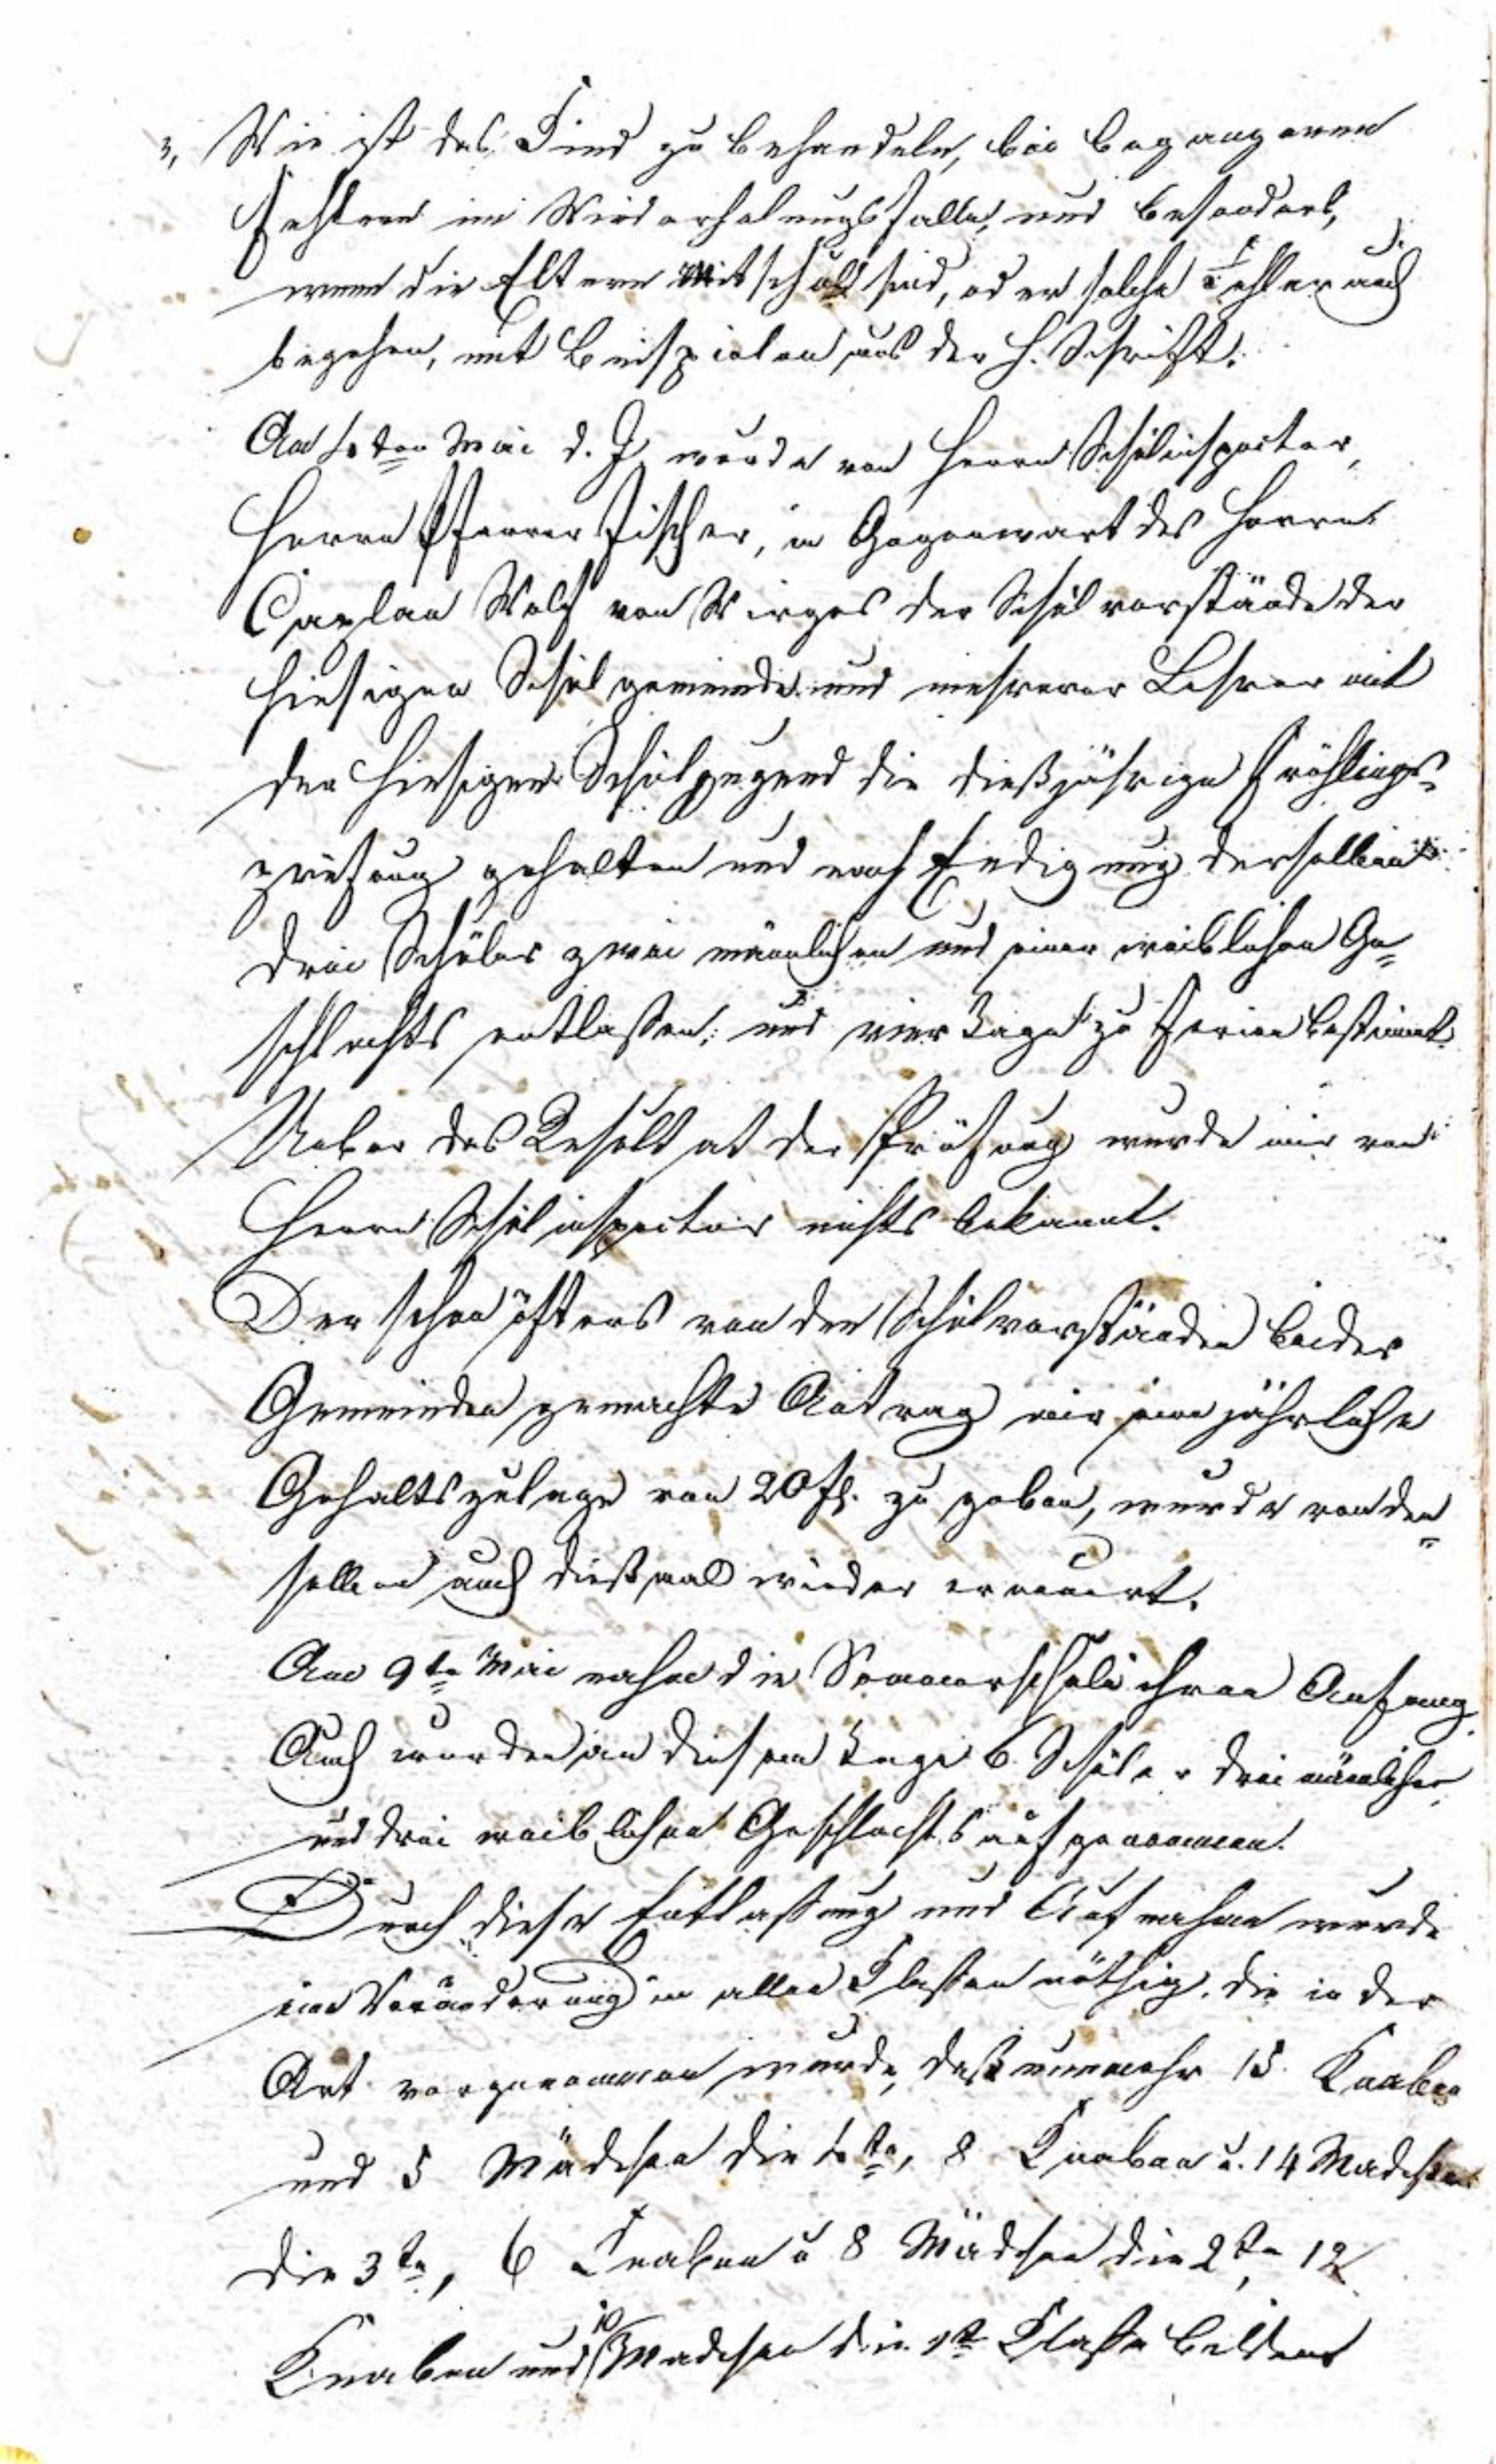 3, Wie ist das Kind zu behandeln, bei begangenen
Fehlern im Wiederholungsfalle, und besonders,
wenn die Eltern Mitschuld sind, oder solche Fehler auch
begehen, mit Beispielen aus der h. Schrift.
Am 4ten Mai d. J. wurde von Herrn Schulinspector,
Herrn Pfarrer Fischer, in Gegenwart des Herrn
Caplan Wolf von Wirges der Schulvorstände der
hiesigen Schulgemeinde und mehrerer Lehrer mit
der hiesigen Schuljugend die dießjährige Frühlings-
prüfung gehalten und nach Endigung derselben
drei Schüler zwei männlichen und einer weiblichen Ge=
schlechts entlassen, und vier Tage zu Ferien bestimmt.
Ueber das Resultat der Prüfung wurde mir von
Herrn Schulinspector nichts bekannt.
Der schon öfters von den Schulvorständen beider
Gemeinden gemachte Antrag mir eine jährliche
Gehaltszulage von 20 fl. zu geben, wurde von den=
selben auch dießmal wieder erneuert.
Am 9ten Mai nahm die Sommerschule ihren Anfang.
Auch wurden an diesem Tage 6 Schüler drei männlichen
und drei weiblichen Geschlechts aufgenommen.
Durch diese Entlassung und Aufnahme wurde
eine Veränderung in allen Klassen nöthig, die in der
Art vorgenommen wurde, daß nunmehr 15 Knaben
und 5 Mädchen die 4te, 8 Knaben u. 14 Mädchen
die 3te, 6 Knaben u 8 Mädchen die 2te, 12
Knaben und 10 Mädchen die 1te Klasse bilden